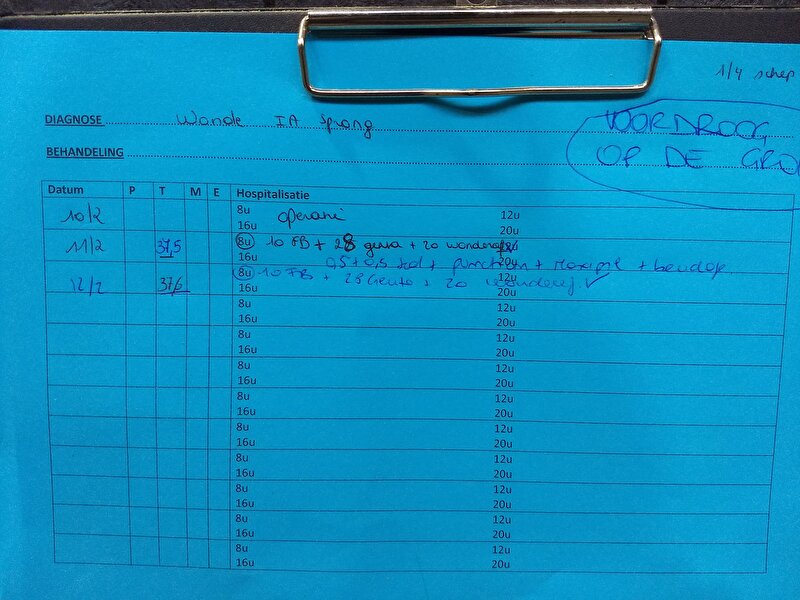 1/4 schep
DIAGNOSE Wonde IA sprong
VOORDROOG
OP DE GRO
BEHANDELING
Datum P T M E Hospitalisatie
10/2 8u operatie 12u
16u 20u
11/2 37,5 8u 10 FB + 28 genta + 20 12u
16u 20u
0,5 + 0,5 + + +
12/2 37,6 8u 10 FB + 28 Genta + 20 12u
16u 20u
8u 12u
16u 20u
8u 12u
16u 20u
8u 12u
16u 20u
8u 12u
16u 20u
8u 12u
16u 20u
8u 12u
16u 20u
8u 12u
16u 20u
8u 12u
16u 20u
8u 12u
16u 20u